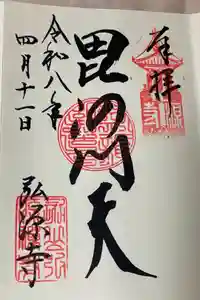 奉拝
毘沙門天
弘源寺
令和八年
四月十一日